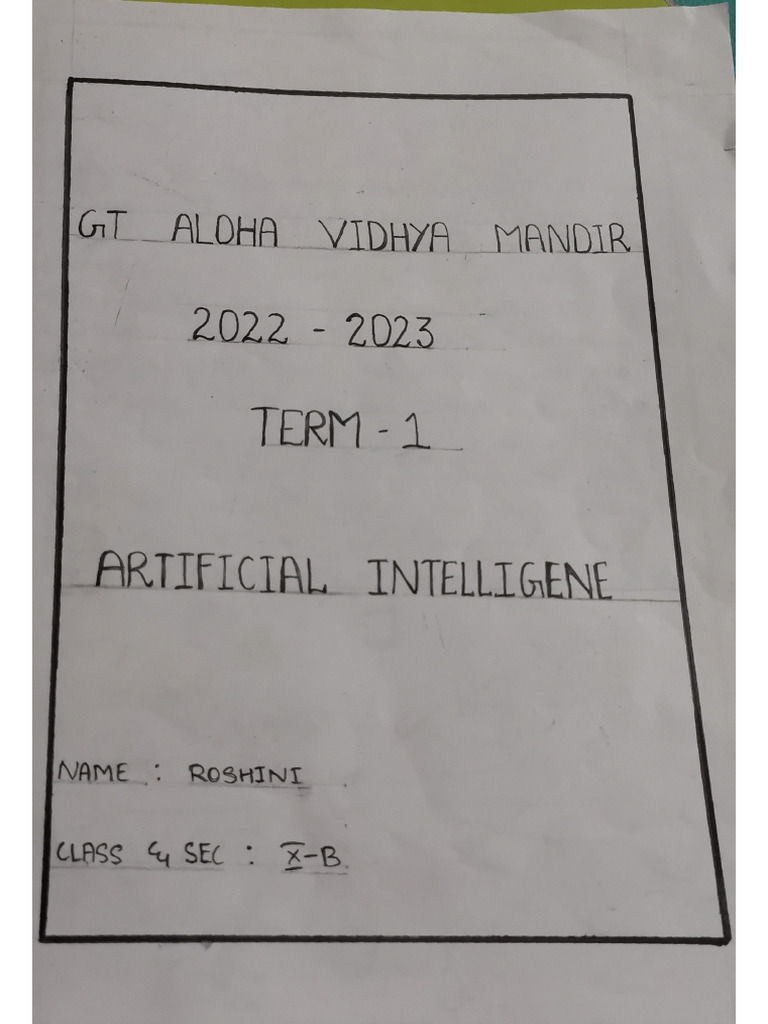 GT ALOHA VIDHYA MANDIR
2022 - 2023
TERM - 1
ARTIFICIAL INTELLIGENE
NAME : ROSHINI
CLASS & SEC : X-B.